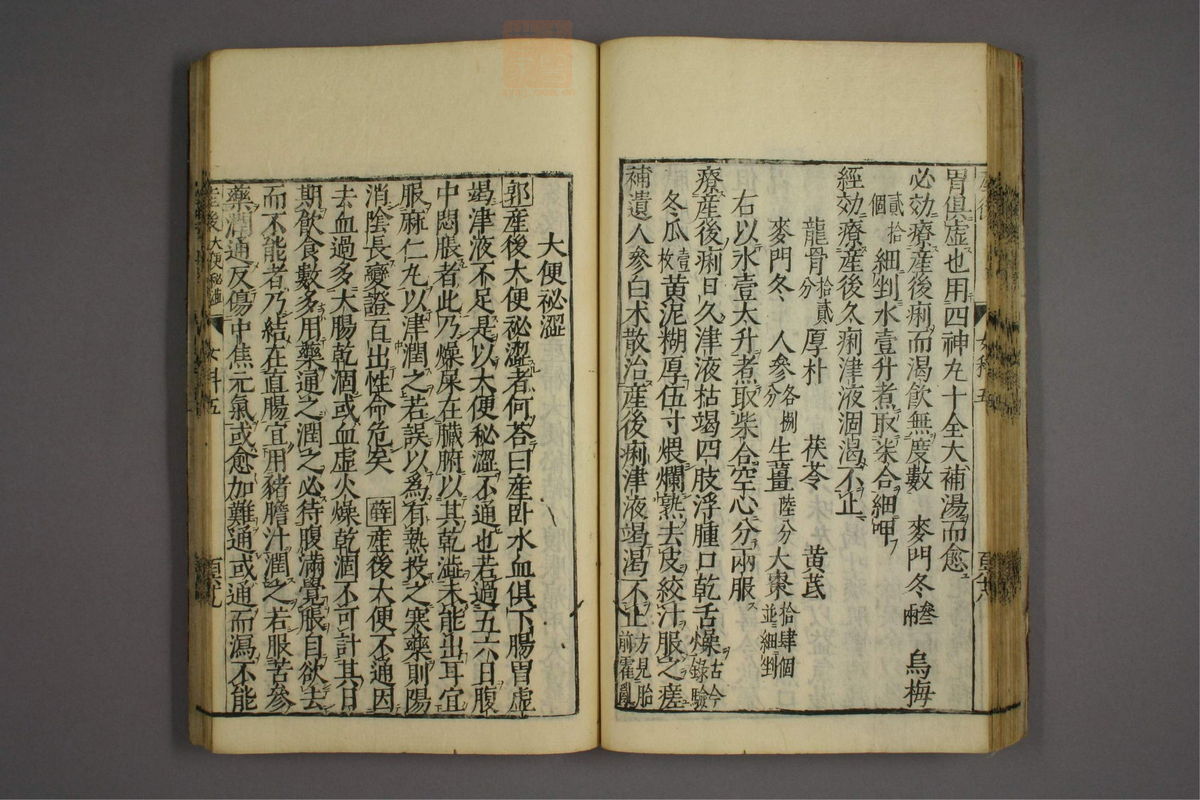 胃俱虛也用四神丸十全大補湯而愈
必効療產後痢而渴飲無度數 麥門冬叁兩 烏梅
貳拾個 細剉水壹升煮取柒合細呷
經効療產後久痢津液涸渴不止
龍骨拾貳分 厚朴 茯苓 黃芪
麥門冬 人參各捌分 生薑陸分 大棗拾肆個並細剉
右以水壹大升煮取柒合空心分兩服
療產後痢日久津液枯竭四肢浮腫口乾舌燥古今錄驗
冬瓜壹枚 黃泥糊厚伍寸煨爛熟去皮絞汁服之瘥
補遺人參白朮散治產後痢津液竭渴不止方見胎前霍亂
大便祕澀
郭產後大便祕澀者何荅曰產臥水血俱下腸胃虛
竭津液不足是以大便秘澀不通也若過五六日腹
中悶脹者此乃燥屎在臟腑以其乾澁未能出耳宜
服麻仁丸以津潤之若誤以為有熱投之寒藥則陽
消陰長變證百出性命危矣 薛產後大便不通因
去血過多大腸乾涸或血虛火燥乾涸不可計其日
期飲食數多用藥通之潤之必待腹滿覺脹自欲去
而不能者乃結在直腸宜用豬膽汁潤之若服苦參
藥潤通反傷中焦元氣或愈加難通或通而瀉不能
產後大便秘澁 女科五